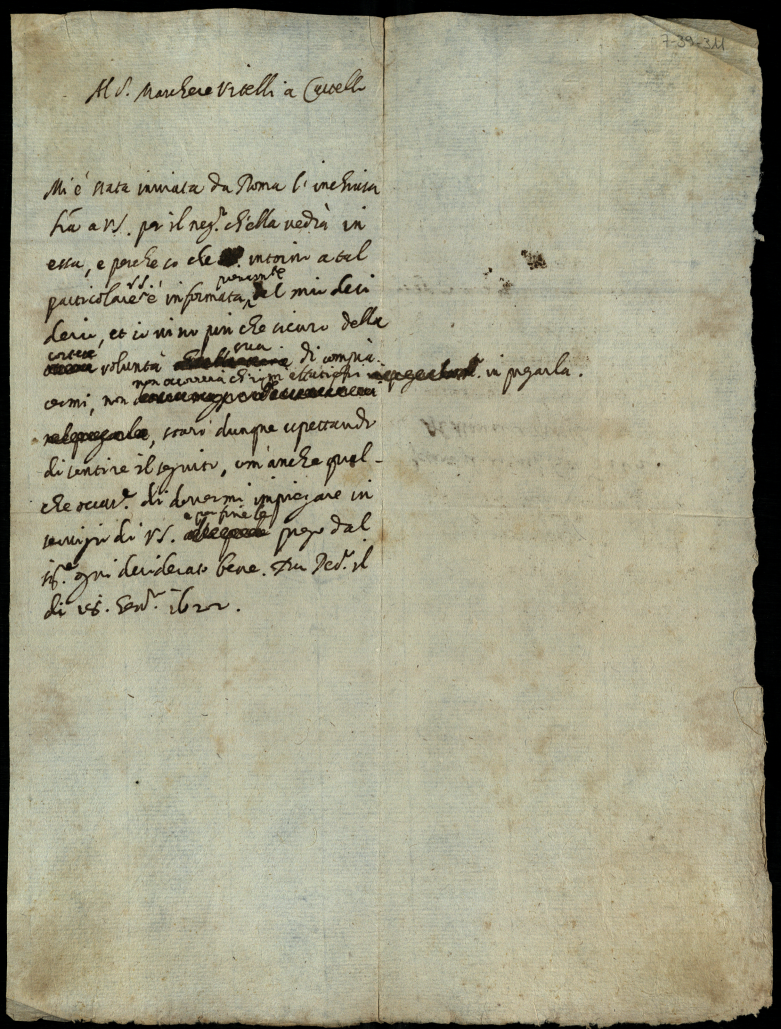 7-39-311
Al S. Marchese Vitelli a Castello
Mi è stata inviata da Roma l'inchiusa
fra a VS. per il neg.º ch'ella vedrà in
essa, e perche so che intorno a tal
particolare VS. è informata pienam.te del mio desi
derio, et io vivo più che sicuro della
cortese volontà sua di compia-
cermi, non occorrerà ch'io mi in pregarla.
starò dunque aspettando
di sentire il seguito, com'anche qual-
che occas.e di dovermi impiegare in
servizio di VS. e per fine le prego dal
Sig.e ogni desiderato bene. Da
di Gen.º 1622.